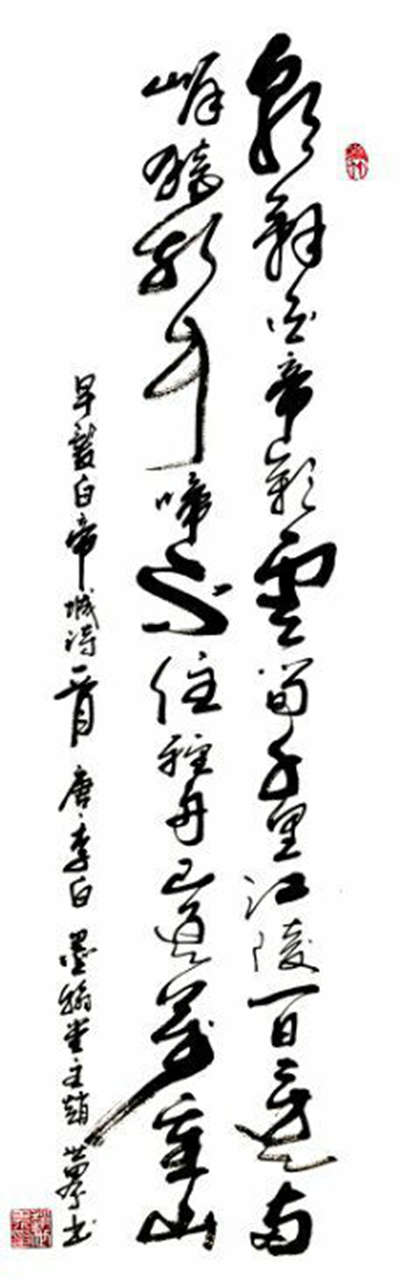 朝辞白帝彩雲间千里江陵一日還两
岸猿聲啼不住輕舟已過萬重山
早發白帝城诗一首 唐·李白 墨翰堂主趙 书